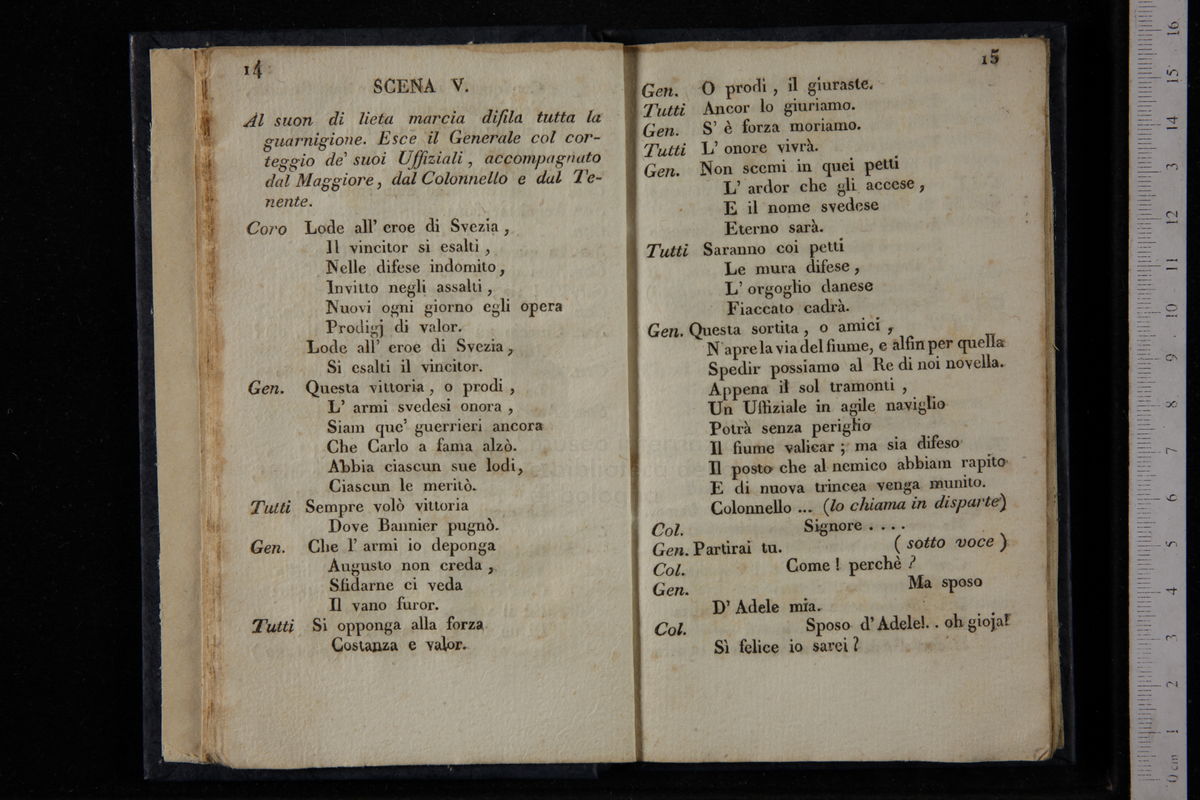 14
SCENA V.
Al suon di lieta marcia difila tutta la
guarnigione. Esce il Generale col cor-
teggio de' suoi Uffiziali, accompagnato
dal Maggiore, dal Colonnello e dal Te-
nente.
Coro Lode all' eroe di Svezia,
Il vincitor si esalti,
Nelle difese indomito,
Invitto negli assalti,
Nuovi ogni giorno egli opera
Prodigj di valor.
Lode all' eroe di Svezia,
Si esalti il vincitor.
Gen. Questa vittoria, o prodi,
L' armi svedesi onora,
Siam que' guerrieri ancora
Che Carlo a fama alzò.
Abbia ciascun sue lodi,
Ciascun le meritò.
Tutti Sempre volò vittoria
Dove Bannier pugnò.
Gen. Che l' armi io deponga
Augusto non creda,
Sfidarne ci veda
Il vano furor.
Tutti Si opponga alla forza
Costanza e valor.
15
Gen. O prodi, il giuraste.
Tutti Ancor lo giuriamo.
Gen. S' è forza moriamo.
Tutti L' onore vivrà.
Gen. Non scemi in quei petti
L' ardor che gli accese,
E il nome svedese
Eterno sarà.
Tutti Saranno coi petti
Le mura difese,
L' orgoglio danese
Fiaccato cadrà.
Gen. Questa sortita, o amici,
N' apre la via del fiume, e alfin per quella
Spedir possiamo al Re di noi novella.
Appena il sol tramonti,
Un Uffiziale in agile naviglio
Potrà senza periglio
Il fiume valicar; ma sia difeso
Il posto che al nemico abbiam rapito
E di nuova trincea venga munito.
Colonnello ... (lo chiama in disparte)
Col. Signore ....
Gen. Partirai tu. (sotto voce)
Col. Come! perchè?
Gen. Ma sposo
D' Adele mia.
Col. Sposo d' Adele!.. oh gioja!
Sì felice io sarei?
0 cm 1 2 3 4 5 6 7 8 9 10 11 12 13 14 15 16